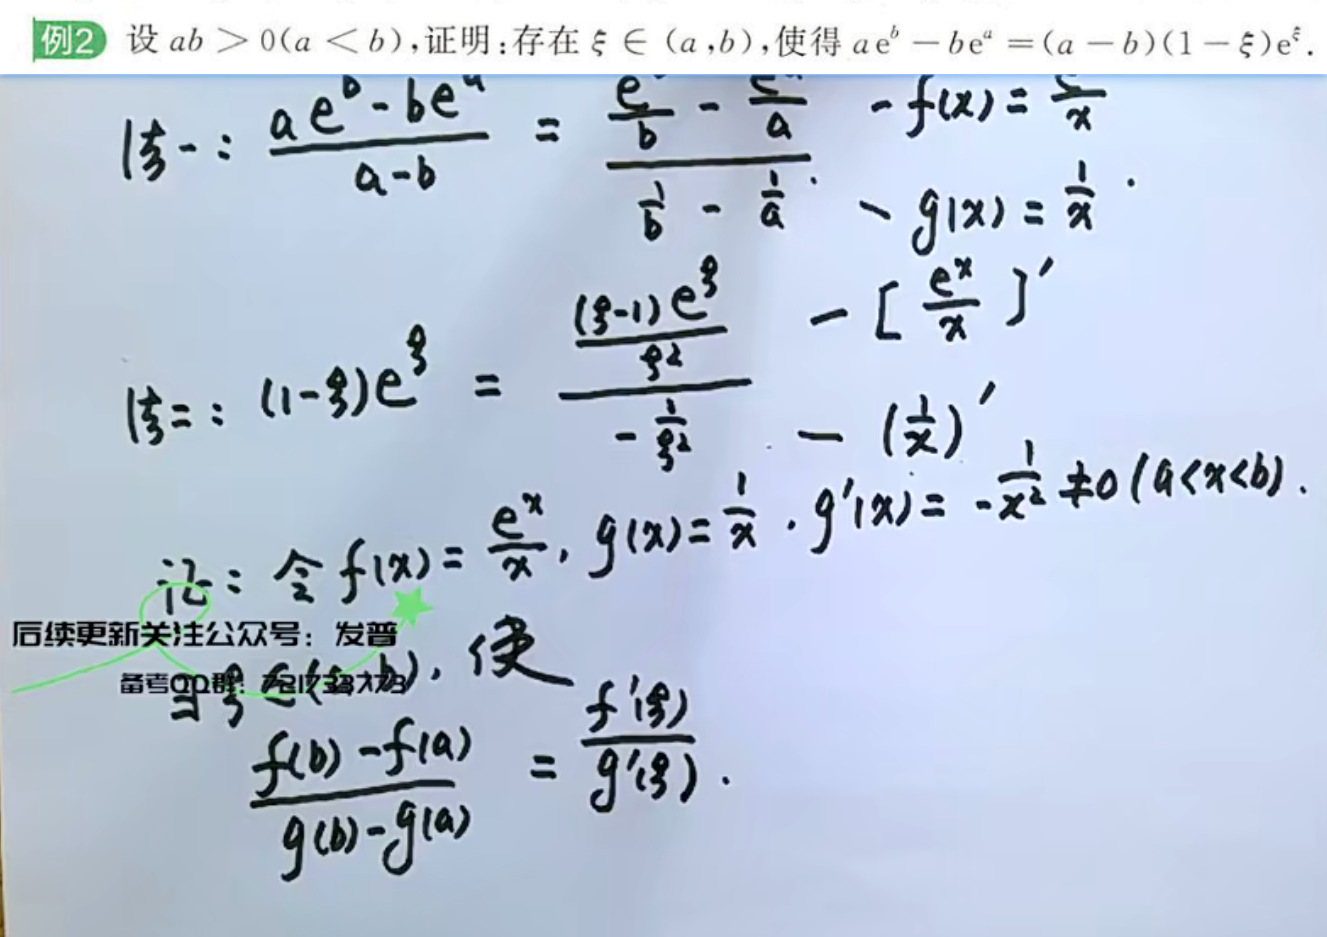 例2 设 ab > 0(a < b),证明:存在 ξ ∈ (a,b),使得 ae^b − be^a = (a − b)(1 − ξ)e^ξ.
法一: (ae^b - be^a)/(a-b) = (e^b/b - e^a/a)/(1/b - 1/a). - f(x) = e^x/x
- g(x) = 1/x.
法二: (1-ξ)e^ξ = ((ξ-1)e^ξ/ξ²)/(-1/ξ²) - [e^x/x]′
- (1/x)′
证: 令 f(x) = e^x/x, g(x) = 1/x. g′(x) = -1/x² ≠ 0 (a<x<b).
后续更新关注公众号：发普
备考QQ群：721733773
∃ξ∈(a,b), 使
(f(b)-f(a))/(g(b)-g(a)) = f′(ξ)/g′(ξ).